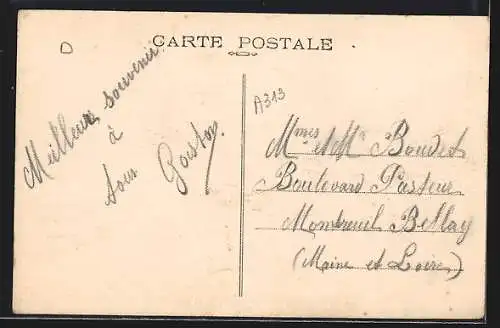 D
CARTE POSTALE
A313
Meilleurs souvenirs
à
tous Gaston
Mmes et Mr Boudet
Boulevard Pasteur
Montreuil Bellay
(Maine et Loire)